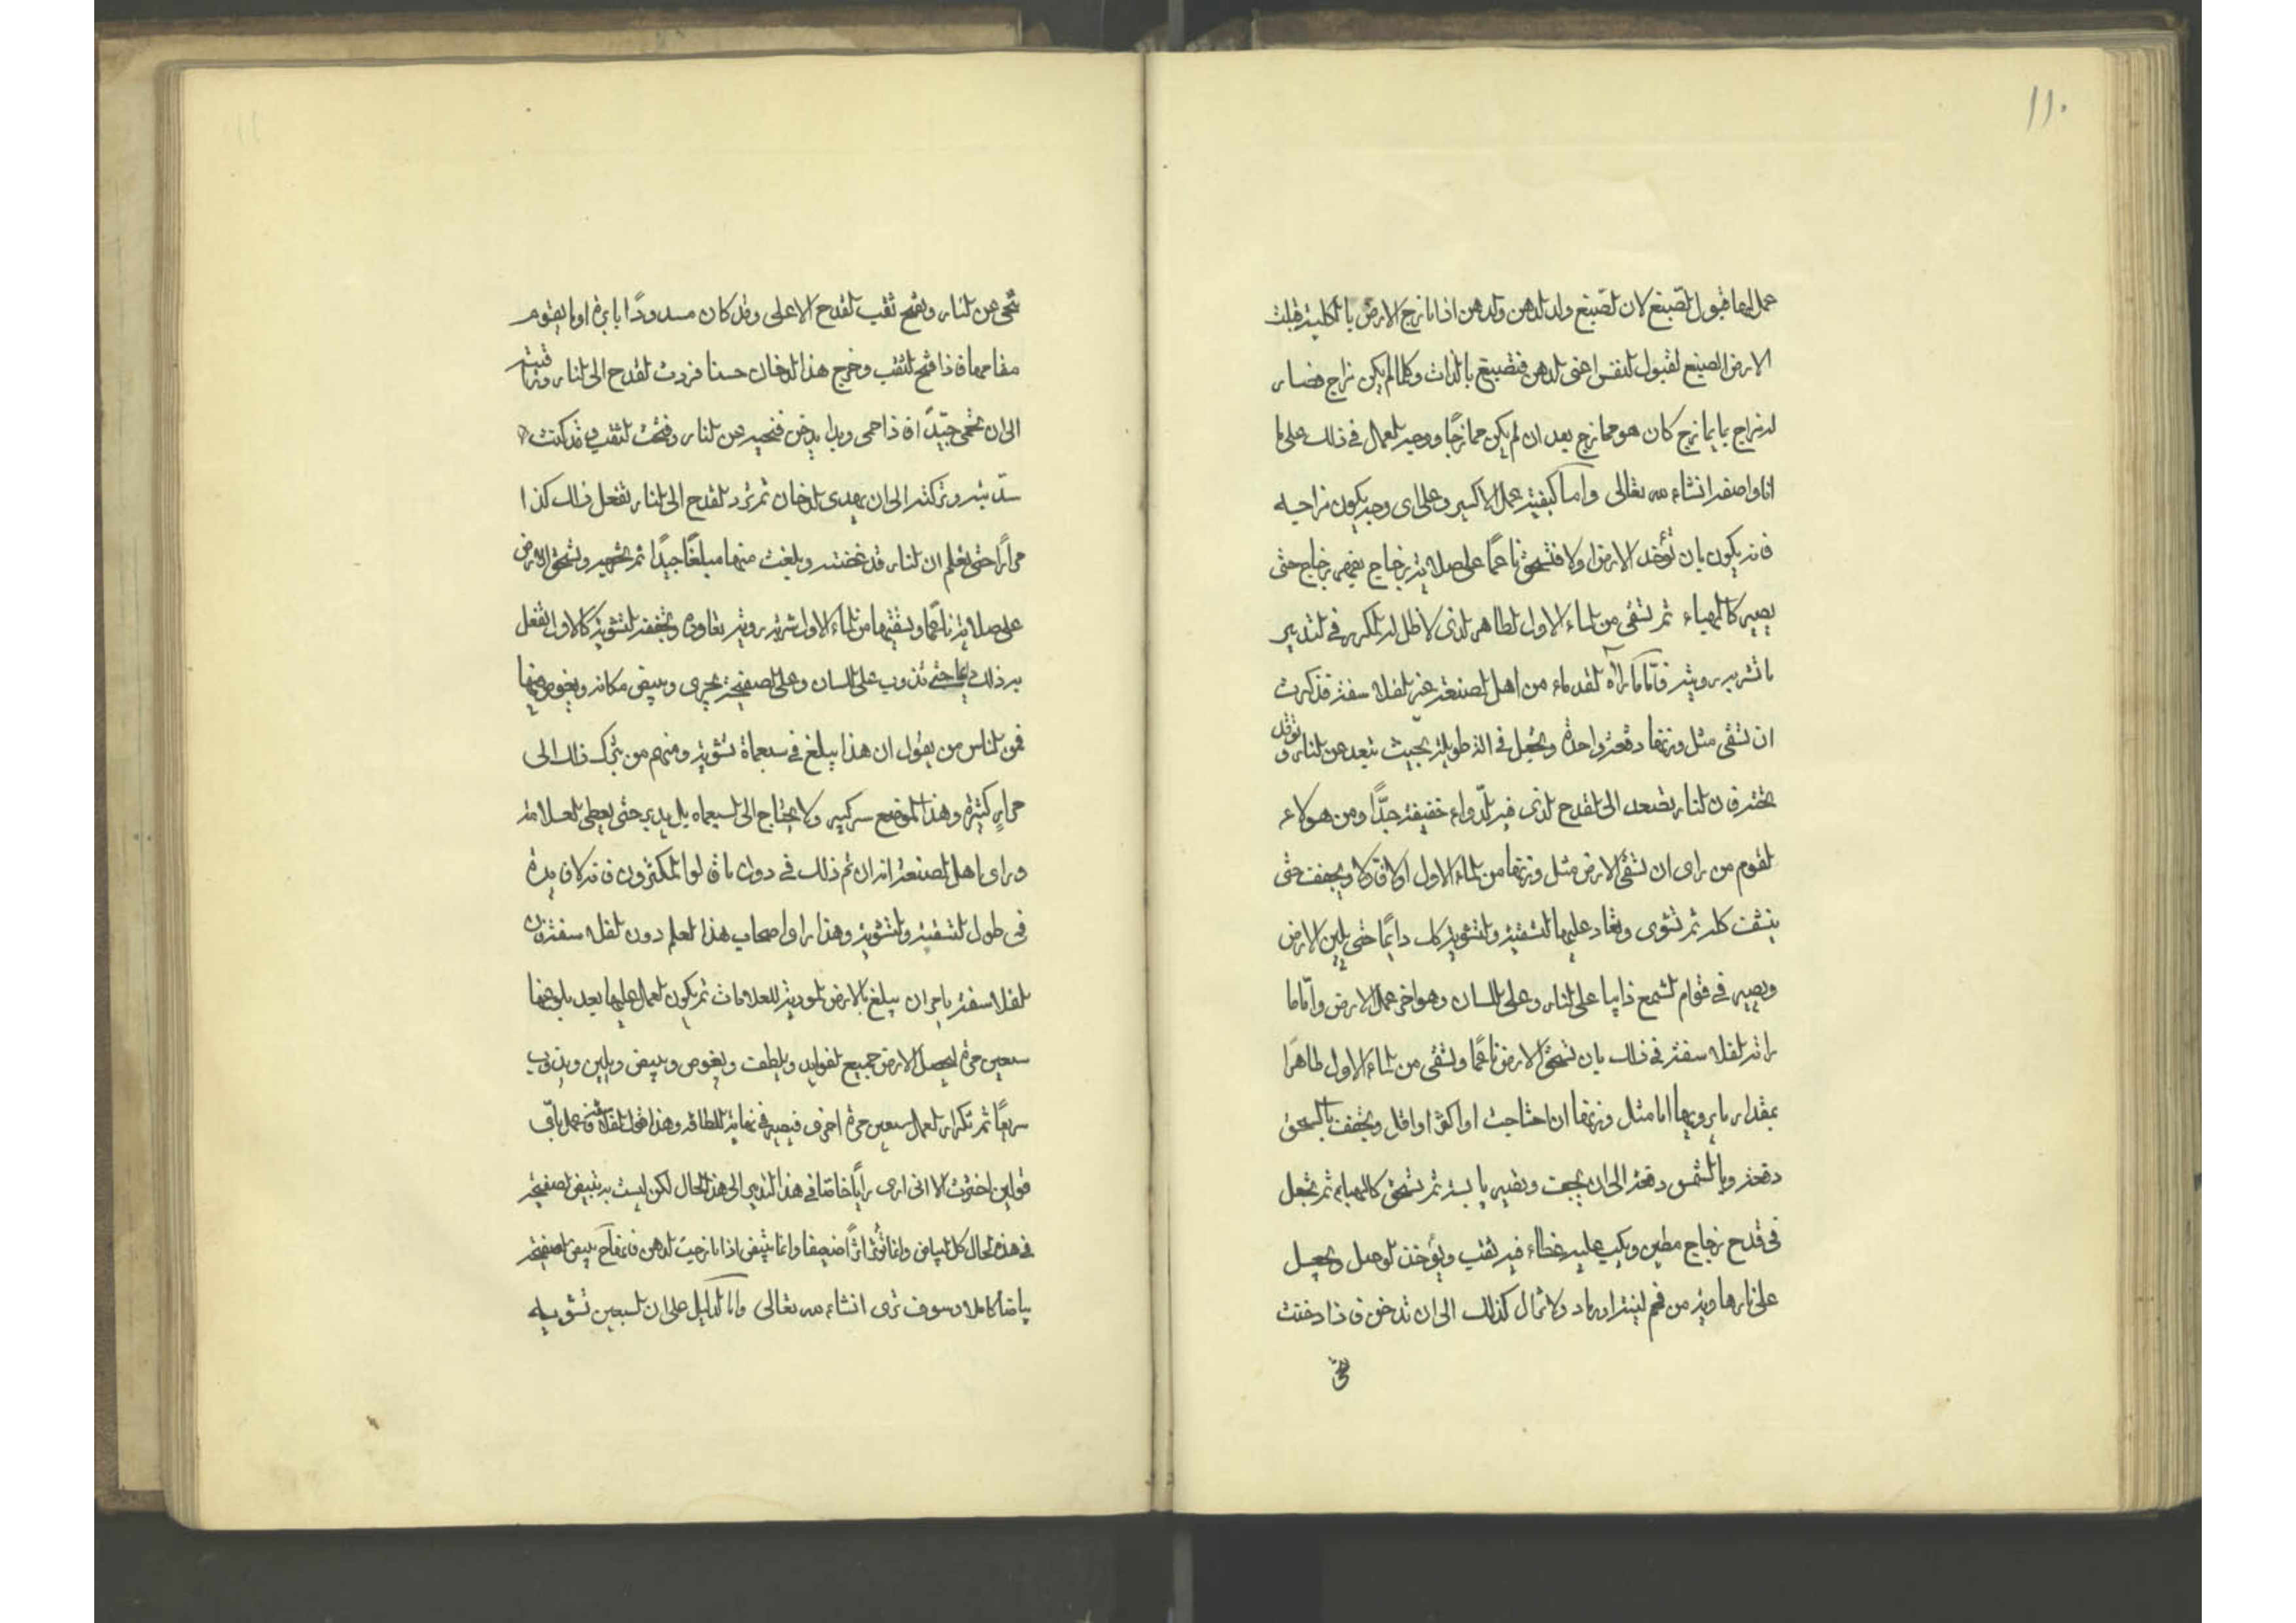 ١١٠
عمل لها قبول الصبغ لان الصبغ ولد الدهن والدهن اذا مازج الارض بالكلية قبلت
الارض الصبغ لقبول النفس اعنى الدهن فتصبغ بالذات وكلما لم يكن مزاج فصار
له مزاج بما يمازج كان هو ممازج بعد ان لم يكن ممازجًا ووجه العمل فى ذلك على ما
انا واصفه انشاء الله تعالى واما كيفية عمل الاكسير وعلى اى وجه يكون مزاجيه
فانه يكون بان تؤخذ الارض اولا فتسحق ناعمًا على صلاية زجاج بفهر زجاج حتى
يصير كالهباء ثم تسقى من الماء الاول الطاهر الذى لا ظل له المكرر فى التدبير
ما تشربه رويته فاما ما رآه القدماء من اهل الصنعة غير الفلاسفة فذكرت
ان تسقى مثل وزنها دفعة واحدة وتجعل فى الة طويلة بحيث تبعد عن النار وتوقد
تحته فان النار تصعد الى القدح الذى فيه الدواء خفيفة جدًا ومن هولاء
القوم من راى ان تسقى الارض مثل وزنها من الماء الاول اولا فاولا ويجفف حتى
ينشف كله ثم تشوى وتعاد عليها التسقية والتشوية كك دايمًا حتى يلين الارض
ويصير فى قوام الشمع ذايبا على النار وعلى اللسان وهو اخر عمل الارض واما ما
راته الفلاسفة فى ذلك بان تسحق الارض ناعمًا وتسقى من الماء الاول طاهرًا
بمقدار ما يرويها اما مثل وزنها ان احتاجت او اكثر او اقل ويجفف بالسحق
دفعة وبالشمس دفعة الى ان يجف وتصير يابسة ثم تسحق كالهباء ثم تجعل
فى قدح زجاج مطين ويكب عليه غطاء فيه ثقب ويؤخذ الوصل ويجعل
على نار هاوية من فحم لينة او رماد ولا تزال كذلك الى ان تدخن فاذا دخنت
نحى
نحى عن النار ويفتح ثقب القدح الاعلى وقد كان مسدودًا بابرة او ما يقوم
مقامها فاذا فتح الثقب وخرج هذا الدخان حسنا فردت القدح الى النار وتراقبه
الى ان تحمى جيّدًا فاذا حمى وبدا يدخن فنحيه عن النار وفتحت الثقب وقد كنت
سدّيته وتركته الى ان يهدى الدخان ثم ترد القدح الى النار تفعل ذلك كذا
مرارًا حتى تعلم ان النار قد نحفته وبلغت منها مبلغًا جيدًا ثم تخرجه وتسحق الارض
على صلاية ناعمًا وتسقيها من الماء الاول شربة روية بقاوة وتجففه التشوية كالاول تفعل
به ذلك دايما حتى تذوب على اللسان وعلى الصفيحة تجرى وتبيض مكانه ويغوص فيها
فمن الناس من يقول ان هذا يبلغ فى سبعماة تشوية ومنهم من يترك ذلك الى
مرار كثيرة وهذا الموضع سر كبير ولا يحتاج الى السبعماه بل يدبر حتى يعطى العلامة
وراى اهل الصنعة انه ان تم ذلك فى دون ما قالوا المكثرون فانه لا فايدة
فى طول التسقية والتشوية وهذا راى اصحاب هذا العلم دون الفلاسفة فان
الفلاسفة يامر ان يبلغ بالارض الموردة للعلامات ثم يكون العمل عليها بعد بلوغها
سبعين مرة ليحصل الارض جميع الفوايد ويلطف ويغوص ويبيض ويلين ويذوب
سريعًا ثم تكرار العمل سبعين مرة اخرى فيصير فى نهاية اللطافة وهذا قول الفلاسفة
قولين اخترت الا انى ارى رايًا خاصًا فى هذا التدبير الى هذا الحال لكن ليست به تبيض الصفيحة
فى هذه الحال كل البياض وانما تؤثر اثرًا ضعيفا وانما تبيض اذا مازجت الدهن فانها ح تبيض الصفيحة
بياضا كاملا وسوف ترى انشاء الله تعالى واما الدليل على ان السبعين تشويه